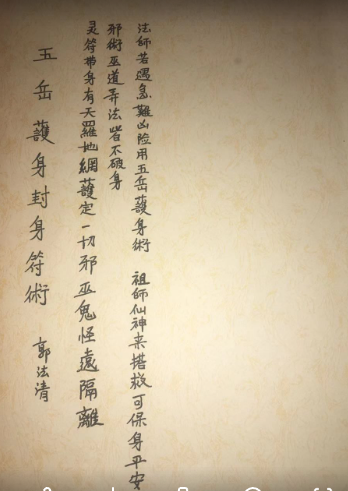 法師若遇急難凶险用五岳護身術 祖師仙神来搭救可保身平安
邪術巫道弄法皆不破身
灵符带身有天羅地網護定一切邪巫鬼怪遠隔離
五岳護身封身符術 郭法清